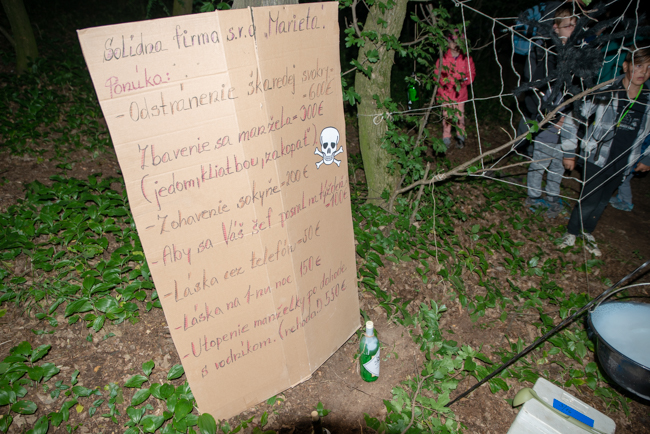 Solídna firma s.r.o „Marieta".
Ponúka:
- Odstránenie škaredej svokry
- 600€
Zbavenie sa manžela - 300€
(jedom, kliatbou, zakopať)
- Zohavenie sokyne - 200€
- Aby sa Váš šéf
- 100€
- Láska cez telefón - 50€
- Láska na 1-nu noc 150€
- Utopenie manželky po dohode
s vodníkom. (nehoda!) 550€